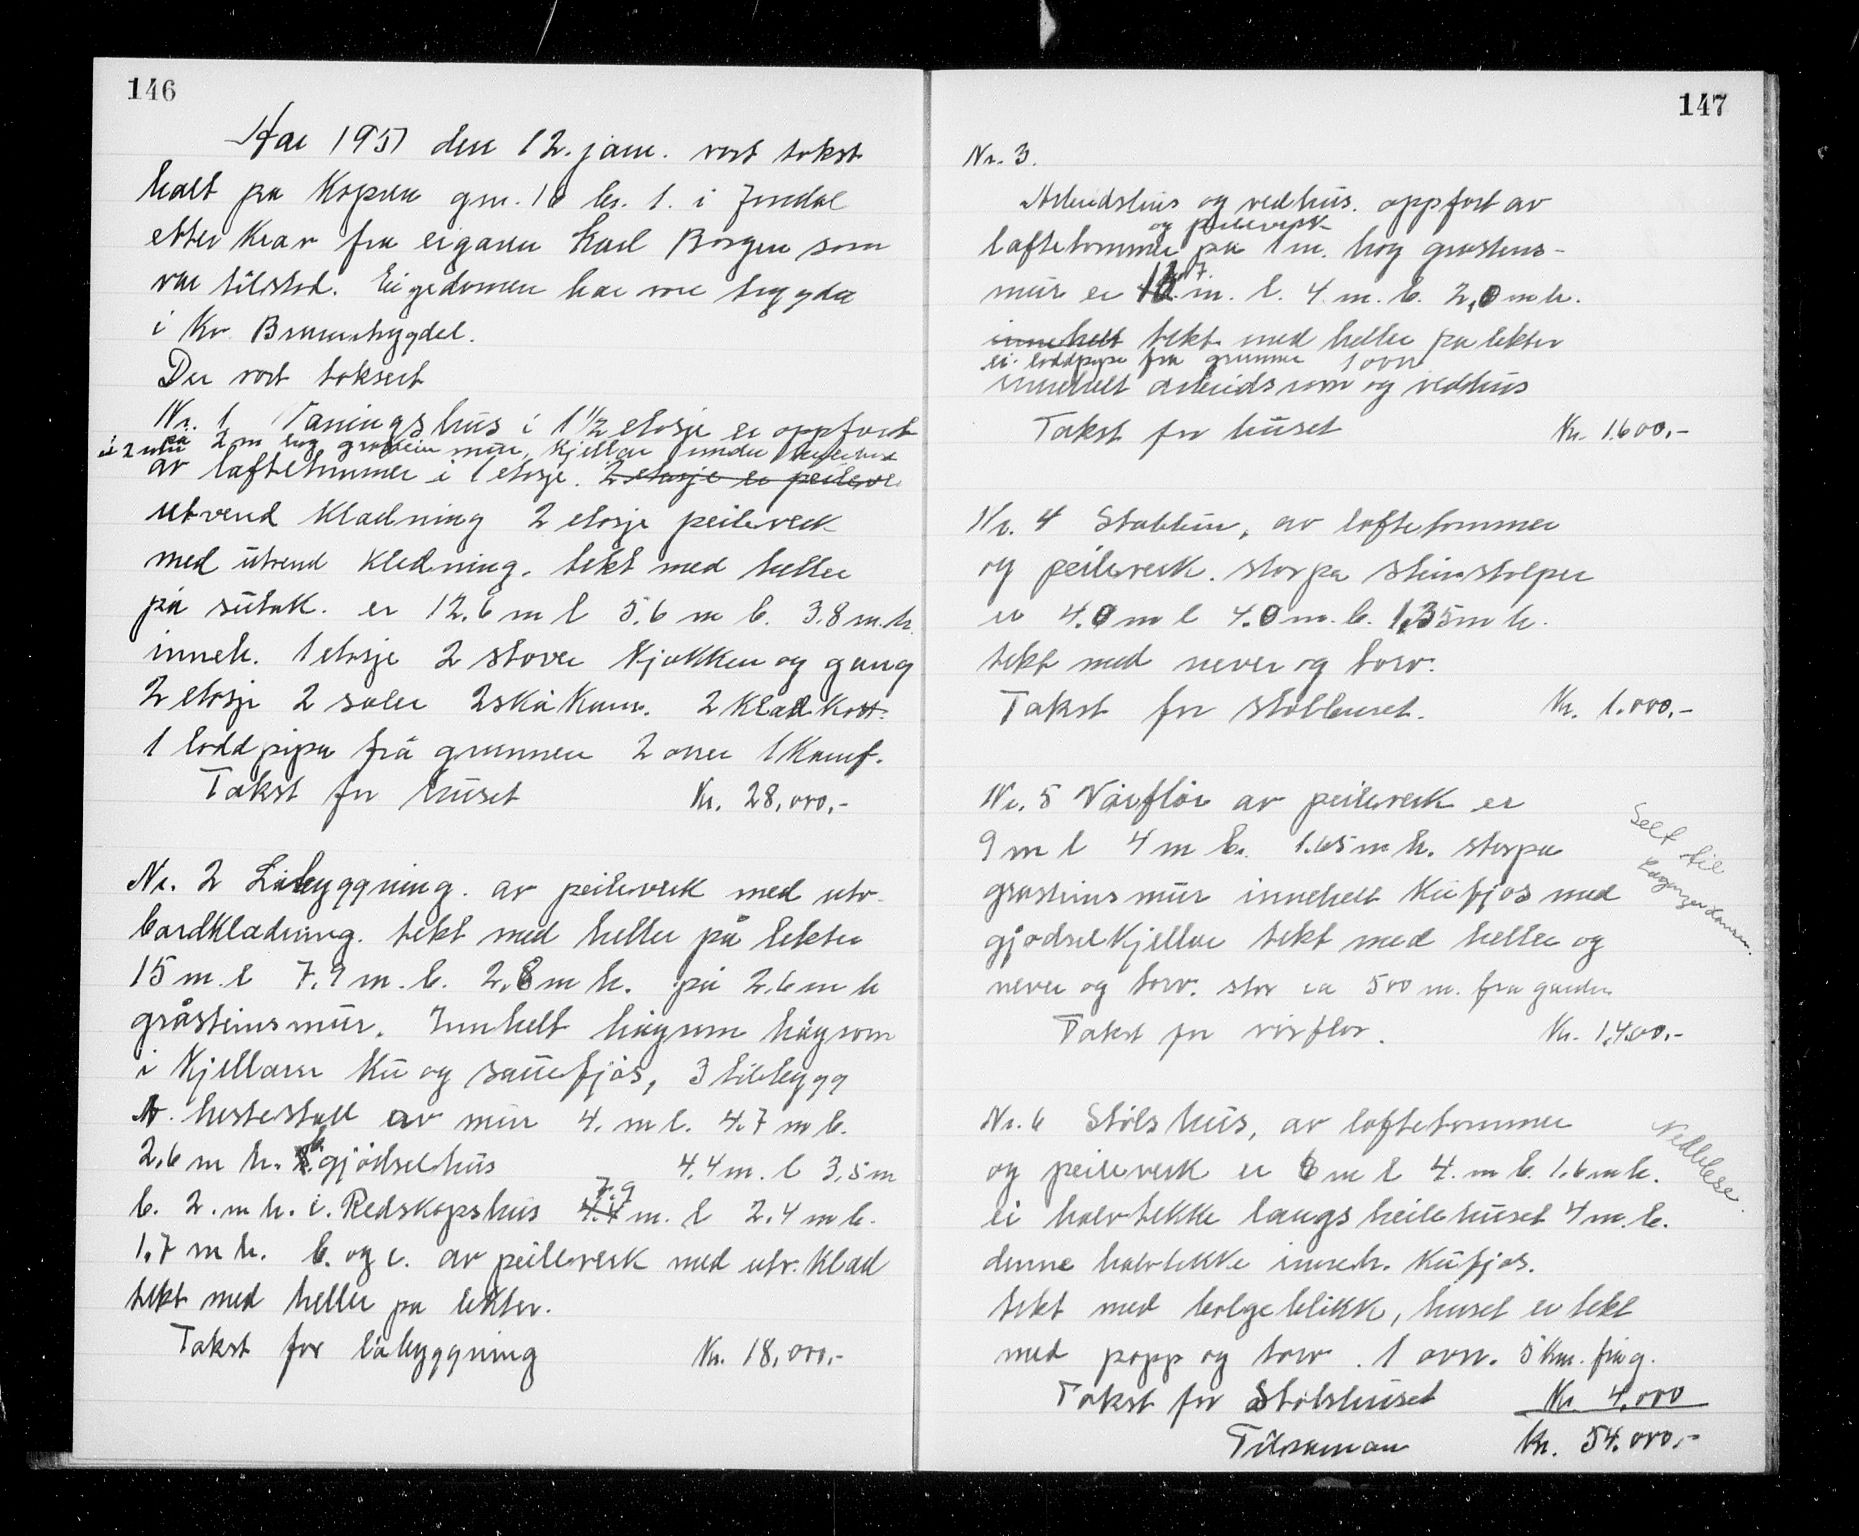 146
Aar 1951 den 12. janu. vart takst
halt på Kopren gnr. 10 br. 1. i Jondal
etter krav fra eigaren Karl Borgen som
var tilstad. Eigedomen har vore trygda
i kr Brannbygdel.
Der vart taksert
Nr. 1 Vaningshus i 1 1/2 etasje er oppført
på 2 m høg gråstein mur, kjellar under
av laftetømmer i 1 etasje. 2 etasje er peileve
utvend kladning 2 etasje peileverk
med utvend kledning. tekt med heller
på sutak. er 12.6 m l 5.6 m b. 3.8 m.h.
inneh. 1 etasje 2 stover kjøkken og gang
2 etasje 2 saler 2 skåkam. 2 klædkott.
1 loddpipa frå grunnen 2 ovner 1 komf.
Takst for huset Kr. 28,000,-
Nr. 2 Løbyggning. av peileverk med utv.
bordkladning. tekt med heller på lekter
15 m. l 7.9 m. b. 2.8 m h. på 2.6 m h
gråsteinsmur. Innhelt høgrom høgrom
i kjellaren ku og sauefjøs, 3 tilbygg
A. hestestall av mur 4. m l. 4.7 m b.
2.6 m h. b. gjødselhus 4.4 m. l 3,5 m
b. 2. m h. c. Redskapshus 4.4 7.9 m. l 2.4 m b.
1.7 m h. b. og c. av peileverk med utv. klad
tekt med heller på lekter.
Takst for løbyggning Kr. 18,000,-
147
Nr. 3.
Arbeidshus og vedhus. oppført av
og peileverk
laftetømmer på 1 m. høg gråsteins-
mur er 12.7. m. l. 4. m. b. 2,0 m h.
innehelt tekt med heller på lekter
ei loddpipe fra grunnen 1 ovn
innehelt arbeidsrom og vedhus
Takst for huset Kr. 1.600,-
Nr. 4 Stabbur, av laftetømmer
og peileverk. står på steinstolper
er 4.0 m l 4.0 m. b. 1,35 m h.
tekt med never og torv.
Takst for stabburet. Kr. 1.000,-
Nr. 5 Vårflor av peileverk er
9 m l 4 m b. 1.65 m h. står på
gråsteinsmur innehelt kufjøs med
gjødselkjellar tekt med heller og
never og torv. står ca 500 m. fra garden
Takst for vårflor. Kr. 1,400,-
Selt til
Nr. 6 Stølshus, av laftetømmer
og peileverk er 6 m l 4. m b. 1.6 m h.
ei halvtekke langs heile huset 4 m. b.
denne halvtekke inneh. kufjøs.
tekt med bølgeblikk, huset er tekt
med papp og torv. 1 ovn. 5 km. frå g.
Takst for Stølshuset Kr. 4.000
Tilsaman Kr. 54.000,-
Nedblese.